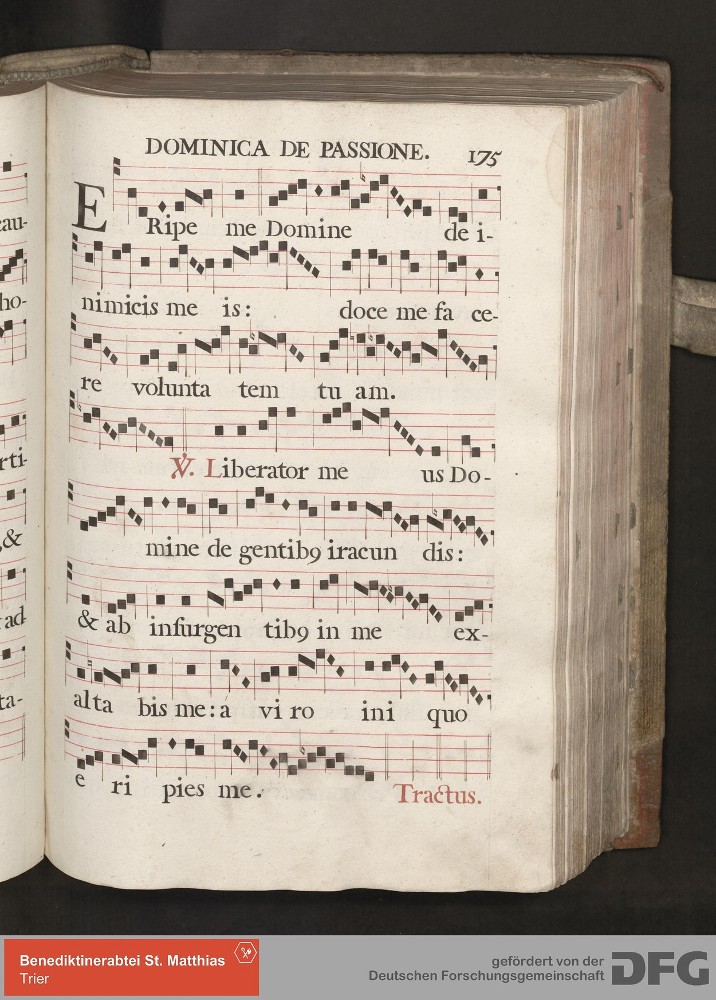 DOMINICA DE PASSIONE. 175
ERipe me Domine de i-
nimicis me is: doce me fa ce-
re volunta tem tu am.
℣. Liberator me us Do-
mine de gentibꝯ iracun dis:
& ab insurgen tibꝯ in me ex-
alta bis me: a vi ro ini quo
e ri pies me. Tractus.
cau-
ho-
rti-
,&
ad-
ta-
Benediktinerabtei St. Matthias
Trier
gefördert von der
Deutschen Forschungsgemeinschaft DFG